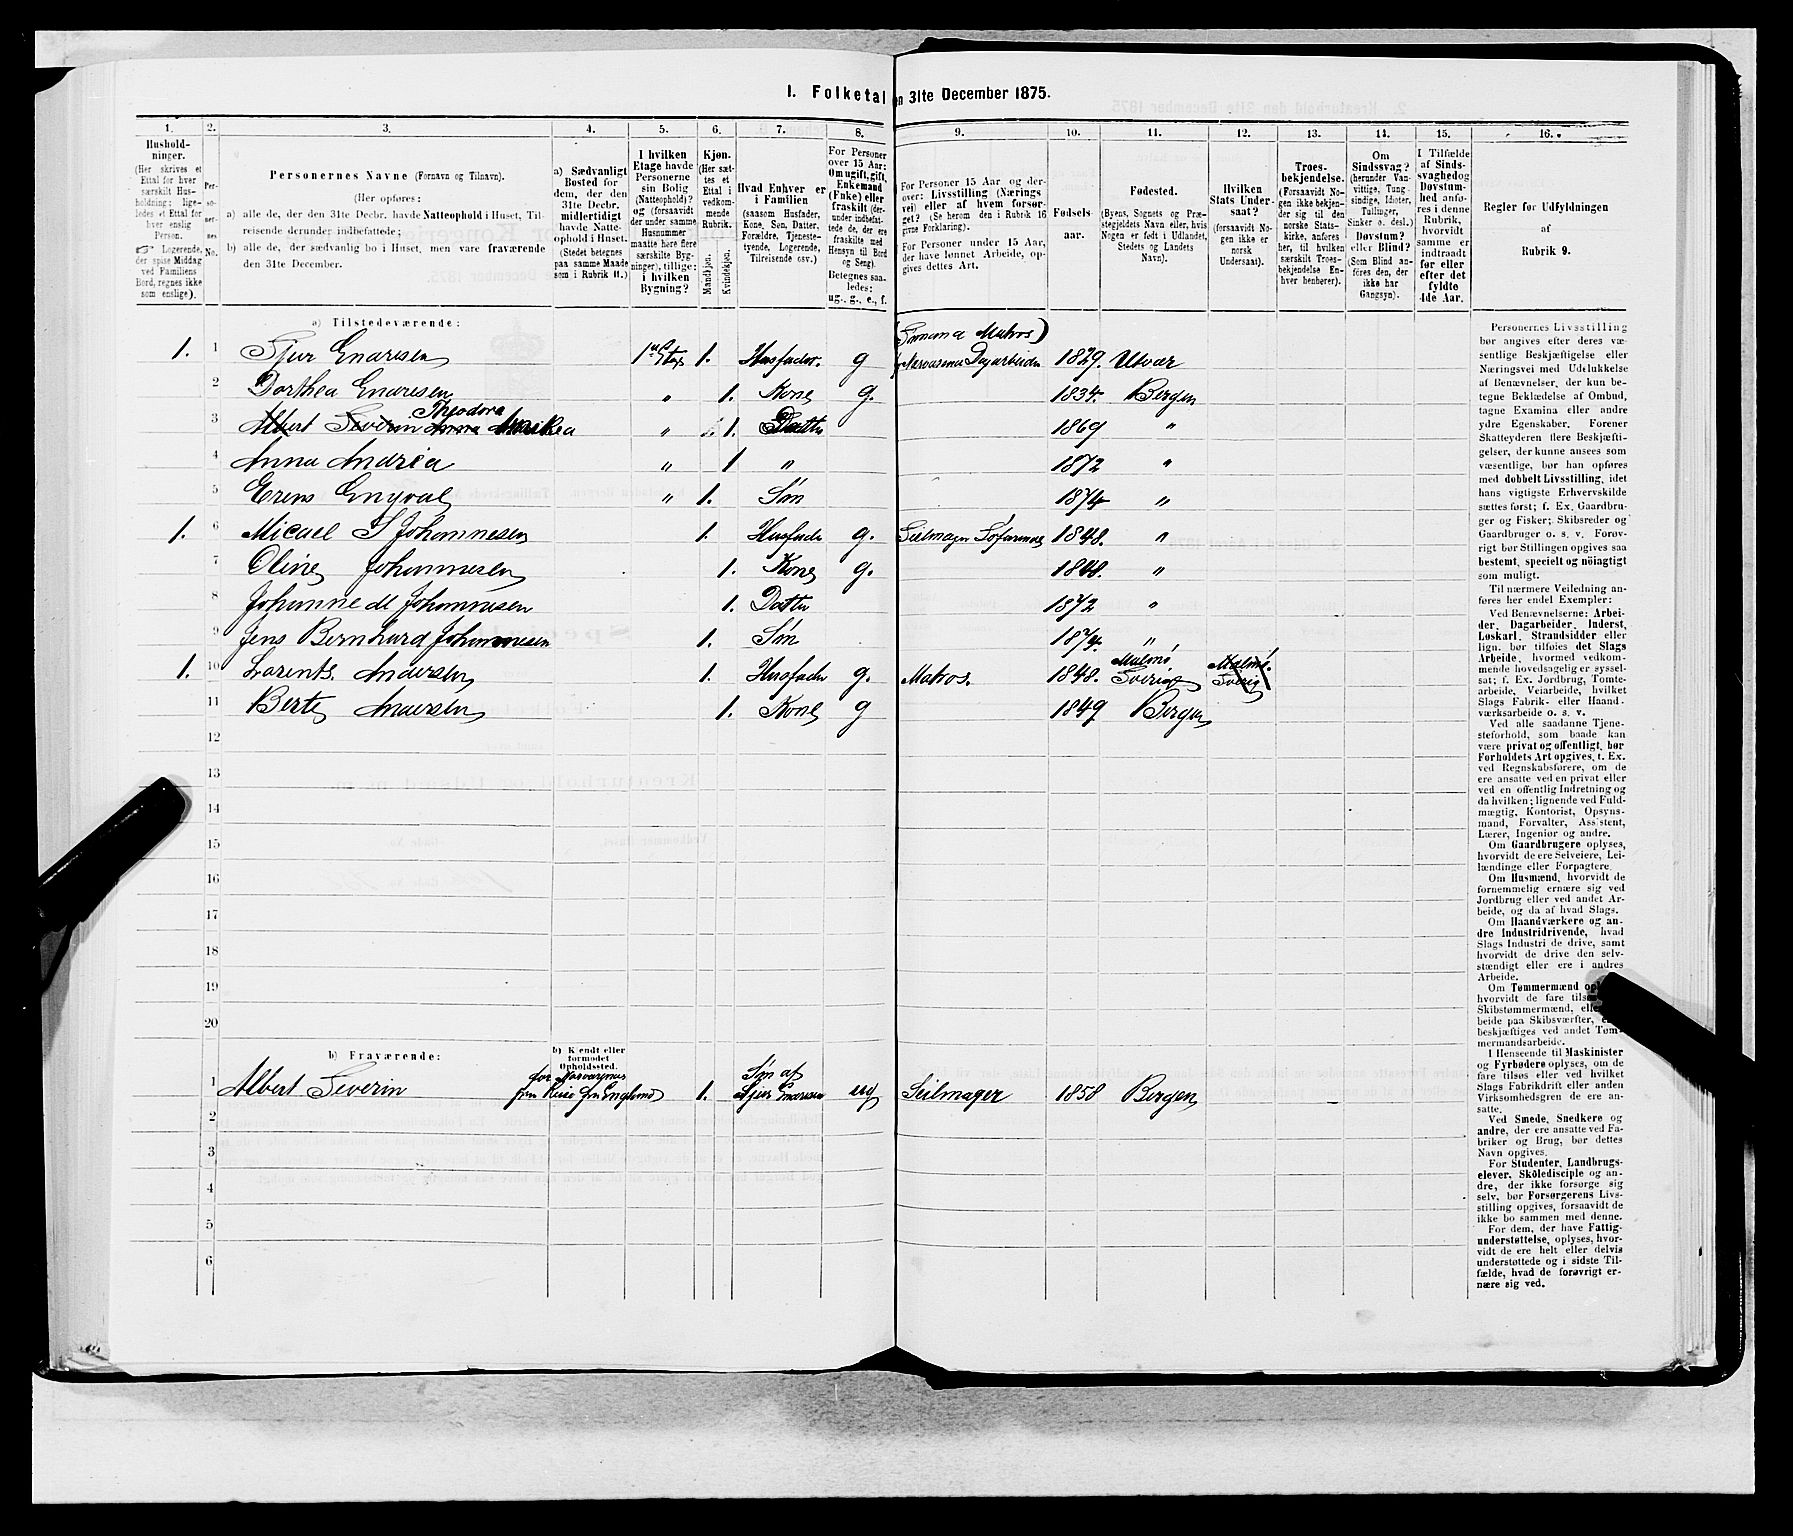 I. Folketal
en 31te December 1875.
1. 2. 3. 4. 5. 6. 7. 8. 9. 10. 11. 12. 13. 14. 15. 16.
Hushold-
ninger.
(Her skrives et
Ettal for hver
særskilt Hus-
holdning; lige-
ledes et Ettal for
hver enslig
Person.
☞ Logerende,
der spise Middag
ved Familiens
Bord, regnes ikke
som enslige).
Per-
so-
ner-
nes
No.
Personernes Navne (Fornavn og Tilnavn).
(Her opføres:
a) alle de, der den 31te Decbr. havde Natteophold i Huset, Til-
reisende derunder indbefattede;
b) alle de, der sædvanlig bo i Huset, men vare fraværende
den 31te December.
a) Sædvanligt
Bosted for
dem, der den
31te Decbr.
midlertidigt
havde Natte-
ophold i Huset.
(Stedet betegnes
paa samme Maade
som i Rubrik 11.)
I hvilken
Etage havde
Personerne
sin Bolig
(Natteophold)?
og (forsaavidt
der under samme
Husnummer
maatte høre flere
særskilte Byg-
ninger), tillige:
i hvilken
Bygning?
Kjøn.
(Her sæt-
tes et
Ettal i
vedkom-
mende
Rubrik.
Mandkjøn.
Kvindekjøn.
Hvad Enhver er
i Familien
(saasom Husfader,
Kone, Søn, Datter,
Forældre, Tjeneste-
tyende, Logerende,
Tilreisende osv.)
For Personer
over 15 Aar:
Om ugift, gift,
Enkemand
(Enke) eller
fraskilt (der-
under indbefat-
tede de, der ere
fraskilte med
Hensyn til Bord
og Seng).
Betegnes saa-
ledes:
ug., g., e., f.
For Personer 15 Aar og der-
over: Livsstilling (Nærings
vei) eller af hvem forsør-
get? (Se herom den i Rubrik 16
givne Forklaring).
For Personer under 15 Aar,
der have lønnet Arbeide, op-
gives dettes Art.
Fødsels-
aar.
Fødested.
(Byens, Sognets og Præ-
stegjeldets Navn eller, hvis
Nogen er født i Udlandet,
Stedets og Landets
Navn).
Hvilken
Stats Under-
saat?
(forsaavidt No-
gen ikke er
norsk
Undersaat).
Troes-
bekjendelse.
(Forsaavidt No-
gen ikke bekjen-
der sig til den
norske Stats-
kirke, anføres
her, til hvilken
særskilt Troes-
bekjendelse En-
hver henhører).
Om
Sindssvag?
(herunder Van-
vittige, Tung-
sindige, Idioter,
Tullinger,
Sinker o. desl.)
Døvstum?
eller Blind?
(Som Blind an-
føres den, der
ikke har
Gangsyn).
I Tilfælde
af Sinds-
svaghed og
Døvstum-
hed anfø-
res i denne
Rubrik,
hvorvidt
samme er
indtraadt
før eller
efter det
fyldte
4de Aar.
Regler før Udfyldningen
af
Rubrik 9.
a) Tilstedeværende:
1. 1 Sjur Enarsen 1ste Etag 1. Husfader g (Somma Matros) Dagarbeider 1829. Utvær
2 Dorthea Enarsen " 1. Kone g. 1834. Bergen
3 Albert Severin Theodora Anna " 1. Datter 1869 "
4 Anna Andrea " 1 " 1872 "
5 Erens Engval " 1. Søn 1874 "
1. 6 Micael S Johannesen 1. Husfader g. Seilmager 1848. "
7 Oline Johannesen 1. Kone g. 1848. "
8 Johanne M Johannesen 1. Datter 1872 "
9 Jens Bernhard Johannesen 1. Søn 1874. "
1. 10 Larents Andersen 1. Husfader g. Matros. 1848. Malmø. Sverige Malmø. Sverig
11 Berte Andersen 1. Kone g 1849 Bergen
12
13
14
15
16
17
18
19
20
b) Fraværende:
b) Kjendt eller
formodet
Opholdssted.
1 Albert Severin Reise fra England 1. Søn af Sjur Enarsen ug Seilmager 1858 Bergen
2
3
4
5
6
Personernes Livsstilling
bør angives efter deres væ-
sentlige Beskjæftigelse eller
Næringsvei med Udelukkelse
af Benævnelser, der kun be-
tegne Beklædelse af Ombud,
tagne Examina eller andre
ydre Egenskaber. Forener
Skatteyderen flere Beskjæfti-
gelser, der kunne ansees som
væsentlige, bør han opføres
med dobbelt Livsstilling, idet
hans vigtigste Erhvervskilde
sættes først; f. Ex. Gaardbru-
ger og Fisker; Skibsreder og
Gaardbruger o. s. v. Forøv-
rigt bør Stillingen opgives saa
bestemt, specielt og nöiagtigt
som muligt.
Til nærmere Veiledning an-
føres her endel Exempler:
Ved Benævnelserne: Arbei-
der, Dagarbeider, Inderst,
Løskarl, Strandsidder eller
lign. bør tilføies det Slags
Arbeide, hvormed vedkom-
mende hovedsagelig er syssel-
sat; f. Ex. Jordbrug, Tomte-
arbeide, Veiarbeide, hvilket
Slags Fabrik- eller Haand-
værksarbeide o. s. v.
Ved alle saadanne Tjene-
steforhold, som baade kan
være privat og offentligt, bør
Forholdets Art opgives, t. Ex.
ved Regnskabsførere, om de
ere ansatte ved en privat eller
ved en offentlig Indretning og
da hvilken; lignende ved Fuld-
mægtig, Kontorist, Opsyns-
mand, Forvalter, Assistent,
Lærer, Ingeniør og andre.
Om Gaardbrugere oplyses,
hvorvidt de ere Selveiere, Lei-
lændinge eller Forpagtere.
Om Husmænd, hvorvidt de
fornemmelig ernære sig ved
Jordbrug eller ved andet Ar-
beide, og da af hvad Slags.
Om Haandværkere og an-
dre Industridrivende, hvad
Slags Industri de drive, samt
hvorvidt de drive den selv-
stændigt eller ere i andres
Arbeide.
Om Tømmermænd
hvorvidt de fare
Skibstømmermænd,
beide paa Skibsværfter,
beskjæftiges ved andet Tøm-
mermandsarbeide.
I Henseende til Maskinister
og Fyrbødere oplyses, om de
fare tilsøs eller ved hvilket
Slags Fabrikdrift eller anden
Virksomhedsgren de ere an-
satte.
Ved Smede, Snedkere og
andre, der ere ansatte ved Fa-
briker og Brug, bør dettes
Navn opgives.
For Studenter, Landbrugs-
elever, Skoledisciple og an-
dre, der ikke forsørge sig
selv, bør Forsørgerens Livs-
stilling opgives, forsaavidt de
ikke bo sammen med denne.
For dem, der have Fattig-
understøttelse, oplyses, hvor-
vidt de ere helt eller delvis
understøttede og i sidste Til-
fælde, hvad de forøvrigt er-
nære sig ved.